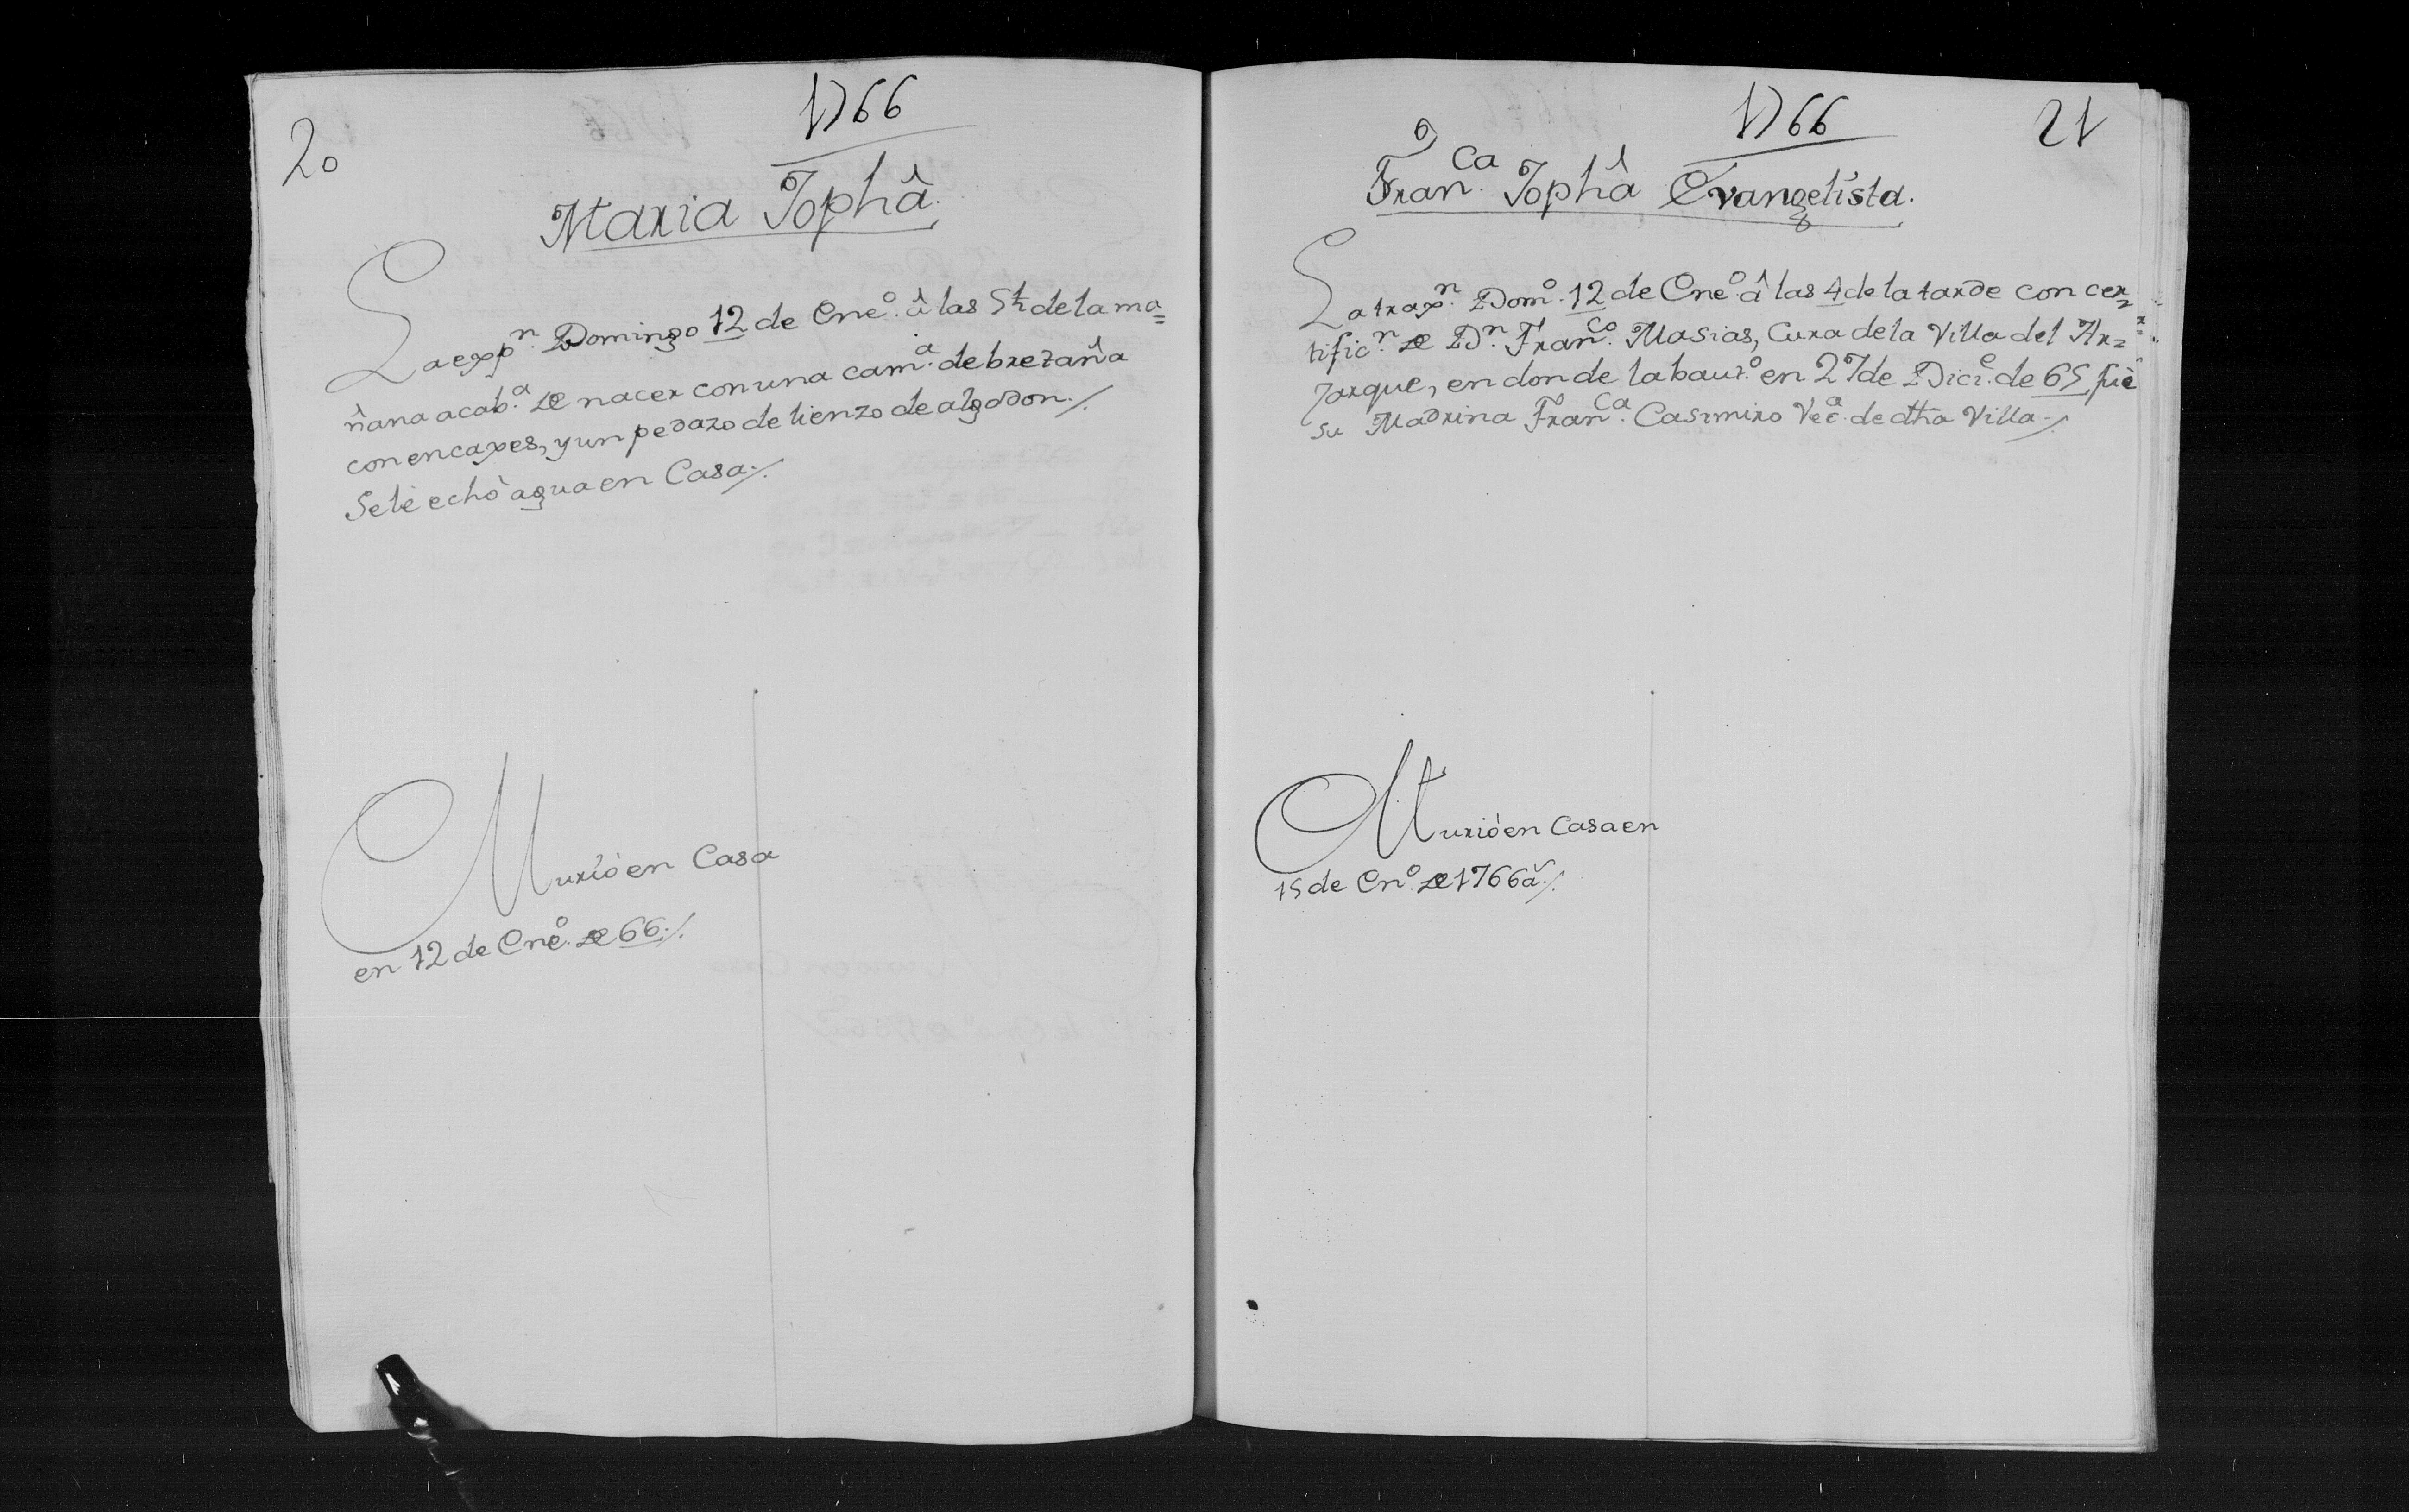 20
1766
Maria Jopha.
La expn. Domingo 12 de Eneo. â las 5 h de la ma=
ñana acaba. de nacer con una cama. de bretaña
con encaxes, y un pedazo de lienzo de algodon./.
Se le echò agua en Casa./.
Muriò en Casa
en 12 de Eneo. de 66./.
1766
21
Franca. Jopha Evangelista.
La traxn. Domo. 12 de Eneo. â las 4 de la tarde con cer=
tificn. de Dn. Franco. Masias, Cura de la Villa del Ar=
zarque, en donde la bauzo. en 27 de Dice. de 65, fuè
su Madrina Franca. Casimiro Veca. de dha Villa./.
Muriò en Casa en
15 de Eno. de 1766 a./.